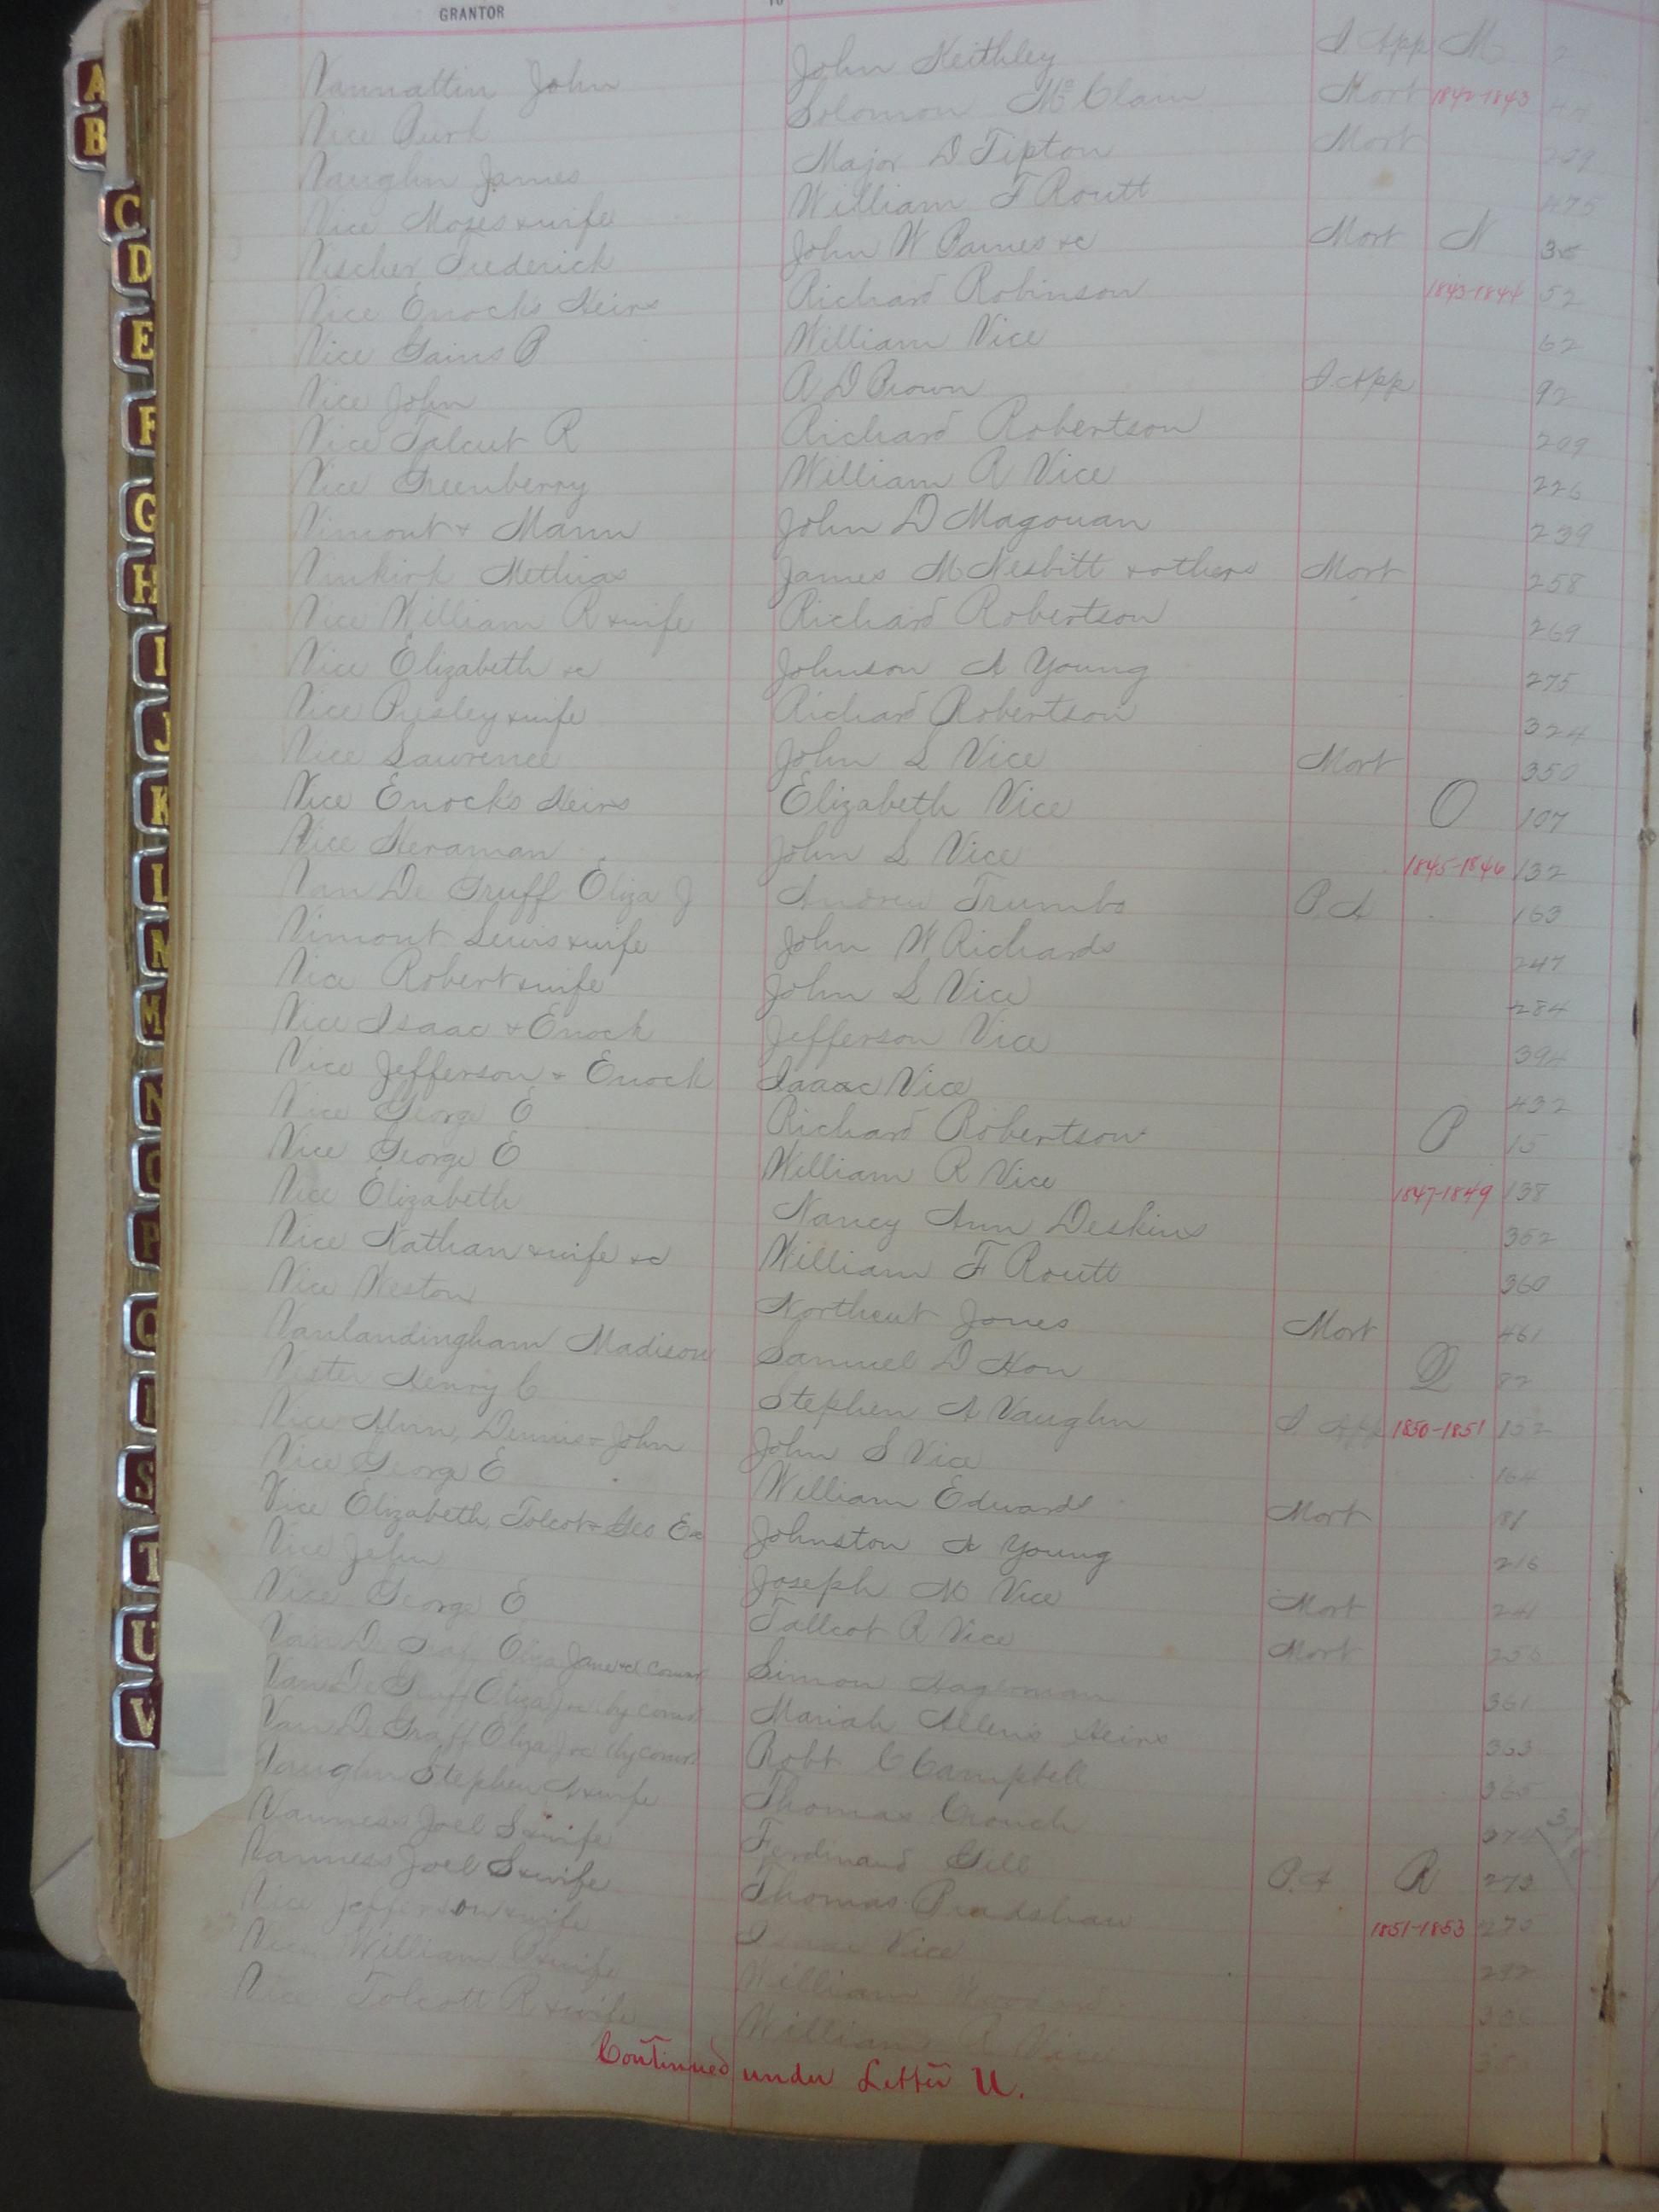 GRANTOR
Vannattin John John Keithley I App M 2
Vice Burk Solomon Mc Clain Mort 1842-1843 44
Vaughn James Major D Tipton Mort 209
Vice Moses & wife William F Routt 475
Vischer Frederick John W Barnes &c Mort N 35
Vice Enock's Heirs Richard Robinson 1843-1844 52
Vice Gains P William Vice 62
Vice John A D Brown I App 92
Vice Talcut R Richard Robertson 209
Vice Greenberry William R Vice 226
Vimont & Mann John D Magowan 239
Vinkirk Methias James M Nesbitt & others Mort 258
Vice William R & wife Richard Robertson 269
Vice Elizabeth &c Johnson A Young 275
Vice Presley & wife Richard Robertson 324
Vice Lawrence John S Vice Mort 350
Vice Enock's Heirs Elizabeth Vice O 107
Vice Heraman John S Vice 1845-1846 132
Van De Gruff Eliza J Andrew Trumbo P. A 163
Vimont Lewis & wife John W Richards 247
Vice Robert & wife John S Vice 284
Vice Isaac & Enock Jefferson Vice 394
Vice Jefferson & Enock Isaac Vice 432
Vice George E Richard Robertson P 15
Vice George E William R Vice 1847-1849 138
Vice Elizabeth Nancy Ann Deskins 352
Vice Nathan & wife &c William F Routt 360
Vice Weston Northcut Jones Mort 461
Vanlandingham Madison Samuel D Hon Q 82
Vester Henry C Stephen A Vaughn I App 1850-1851 152
Vice Alvin, Dennis & John John S Vice 164
Vice George E William Edwards Mort 181
Vice Elizabeth, Tolcot & Geo E &c Johnston A Young 216
Vice John Joseph M Vice Mort 241
Vice George E Tallcot R Vice Mort 256
Van De Graff Eliza Jane &c Comr Simon 361
Van De Graff Eliza J &c by comr Mariah Allen's Heirs 363
Van De Graff Eliza J &c by comr. Robt C Campbell 365
Vaughn Stephen A & wife Thomas Crouch 374
Vanness Joel S & wife Ferdinand Gill P. A R 273
Vanness Joel S & wife Thomas Bradshaw 1851-1853 275
Vice Jefferson & wife Isaac Vice 292
Vice William & wife William
Vice Tolcott R & wife William R Vice
Continued under Letter U.
A
B
C
D
E
F
G
H
I
J
K
L
M
N
O
P
Q
S
T
U
V